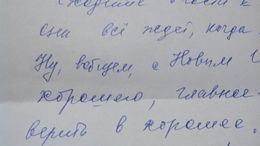 они всё ждут, когда
Ну, вобщем, с Новым
хорошего, главное
верить в хорошее.